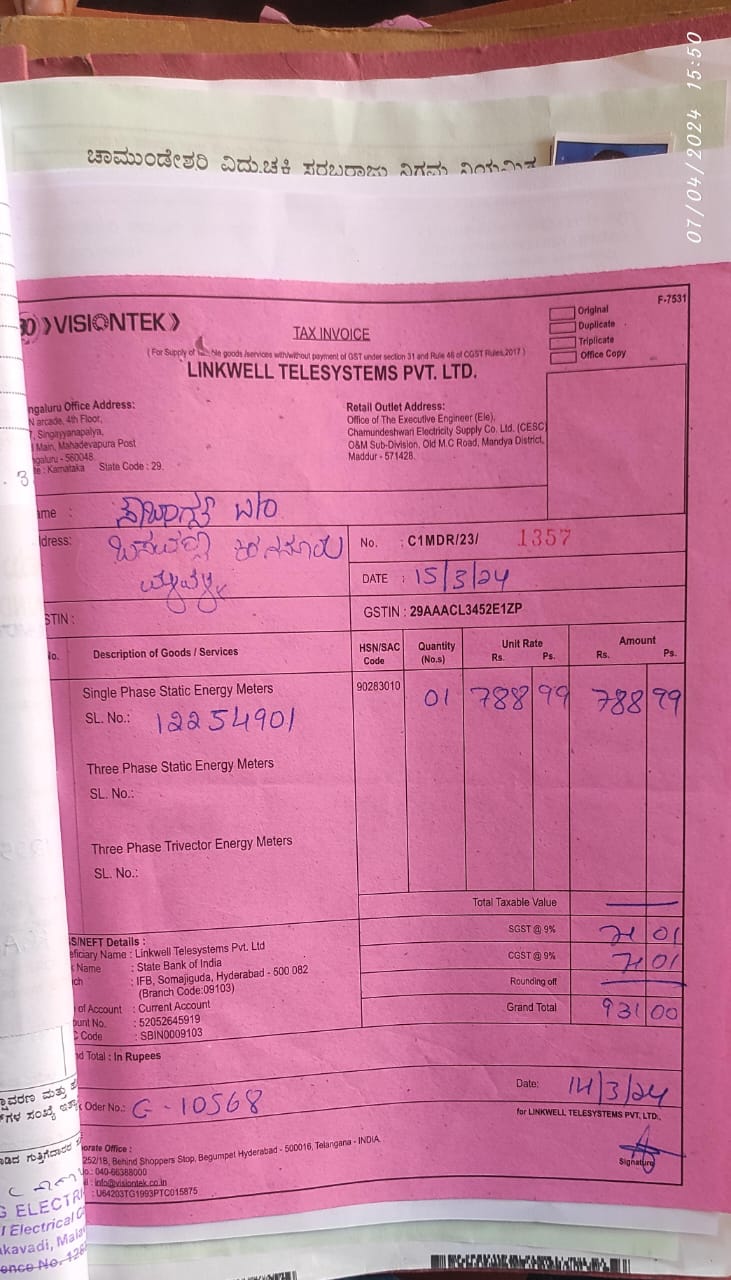 07/04/2024 15:50
ಚಾಮುಂಡೇಶ್ವರಿ ವಿದ್ಯುಚ್ಛಕ್ತಿ ಸರಬರಾಜು ನಿಗಮ ನಿಯಮಿತ
F-7531
VISIONTEK
TAX INVOICE
Original
Duplicate
Triplicate
Office Copy
(For Supply of goods /services with/without payment of GST under section 31 and Rule 46 of CGST Rules,2017)
LINKWELL TELESYSTEMS PVT. LTD.
ngaluru Office Address:
N arcade, 4th Floor,
, Singayyanapalya,
Main, Mahadevapura Post
galuru - 560048.
e : Karnataka State Code : 29.
Retail Outlet Address:
Office of The Executive Engineer (Ele),
Chamundeshwari Electricity Supply Co. Ltd. (CESC)
O&M Sub-Division, Old M.C Road, Mandya District,
Maddur - 571428.
ame :
dress:
No. : C1MDR/23/ 1357
DATE : 15/3/24
STIN :
GSTIN : 29AAACL3452E1ZP
No. Description of Goods / Services HSN/SAC Code Quantity (No.s) Unit Rate Rs. Ps. Amount Rs. Ps.
Single Phase Static Energy Meters 90283010 01 788 99 788 99
SL. No.: 12254901
Three Phase Static Energy Meters
SL. No.:
Three Phase Trivector Energy Meters
SL. No.:
Total Taxable Value
SGST @ 9% 71 01
CGST @ 9% 71 01
Rounding off
Grand Total 931 00
S/NEFT Details :
eficiary Name : Linkwell Telesystems Pvt. Ltd
Name : State Bank of India
ch : IFB, Somajiguda, Hyderabad - 500 082
(Branch Code:09103)
of Account : Current Account
unt No. : 52052645919
Code : SBIN0009103
nd Total : In Rupees
Oder No.: G - 10568
Date: 14/3/24
for LINKWELL TELESYSTEMS PVT. LTD.,
Signature
orate Office :
252/1B, Behind Shoppers Stop, Begumpet Hyderabad - 500016, Telangana - INDIA.
o.: 040-66388000
il : info@visiontek.co.in
: U64203TG1993PTC015875
G ELECTRI
l Electrical C
akavadi, Mala
ence No.